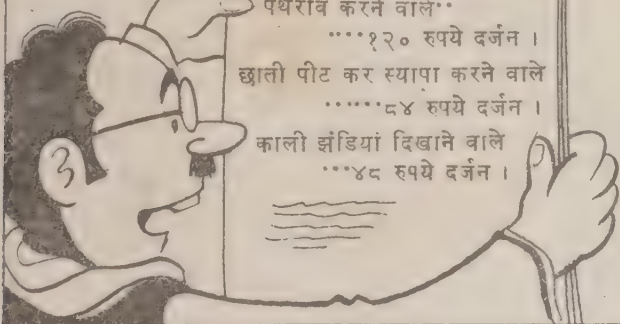 पथराव करने वाले··
····१२० रुपये दर्जन ।
छाती पीट कर स्यापा करने वाले
······८४ रुपये दर्जन ।
काली झंडियां दिखाने वाले
····४८ रुपये दर्जन ।